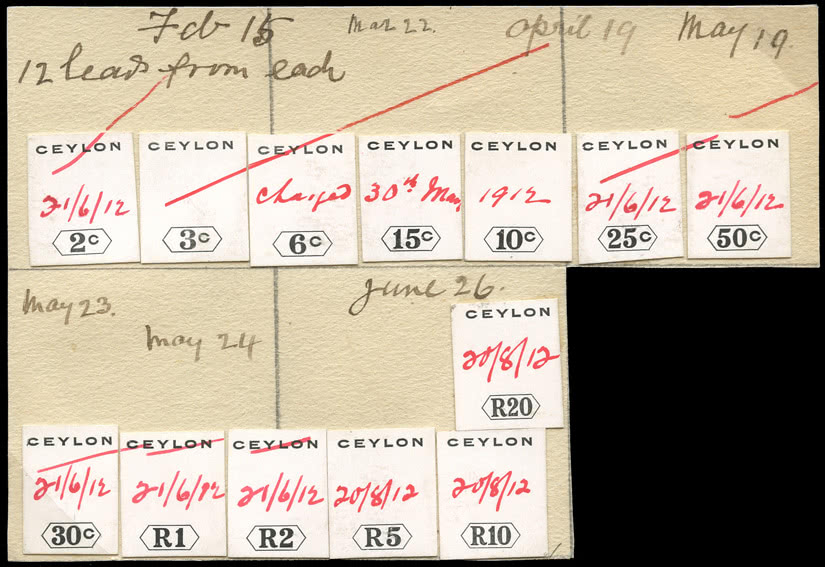 Feb 15 Mar 22. april 19 May 19.
12 leads from each
CEYLON CEYLON CEYLON CEYLON CEYLON CEYLON CEYLON
21/6/12 charged 30th May 1912 21/6/12 21/6/12
2c 3c 6c 15c 10c 25c 50c
May 23. June 26.
May 24
CEYLON
20/8/12
R20
CEYLON CEYLON CEYLON CEYLON CEYLON
21/6/12 21/6/12 21/6/12 20/8/12 20/8/12
30c R1 R2 R5 R10